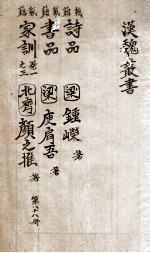 漢魏叢書
載籍 詩品 梁 鍾嶸 著
載籍 書品 梁 庾肩吾 著
載籍 家訓 卷一之三 北齊 顏之推 著 第六十八冊